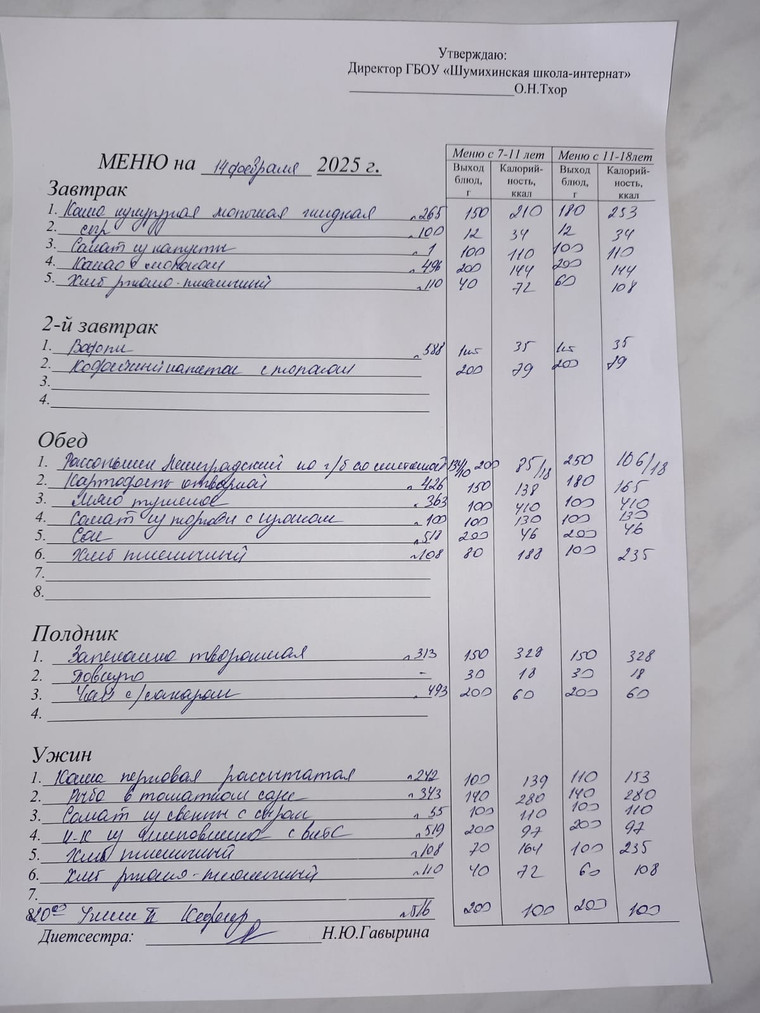 Утверждаю:
Директор ГБОУ «Шумихинская школа-интернат»
О.Н.Тхор
МЕНЮ на 14 февраля 2025 г.
Меню с 7-11 лет Меню с 11-18лет
Выход блюд, г Калорий-ность, ккал Выход блюд, г Калорий-ность, ккал
Завтрак
1. Каша кукурузная молочная жидкая №265 150 210 180 253
2. сыр №100 12 34 12 34
3. Салат из капусты №1 100 110 100 110
4. Какао с молоком №496 200 144 200 144
5. Хлеб ржано-пшеничный №110 40 72 60 108
2-й завтрак
1. Вафли №588 1шт 35 1шт 35
2. Кофейный напиток с молоком 200 79 200 79
3.
4.
Обед
1. Рассольник Ленинградский на г/б со сметаной 134/10 200 85/18 250 106/18
2. Картофель отварной №426 150 138 180 165
3. Мясо тушеное №363 100 410 100 410
4. Салат из моркови с изюмом №100 100 130 100 130
5. Сок №518 200 46 200 46
6. Хлеб пшеничный №108 80 188 100 235
7.
8.
Полдник
1. Запеканка творожная №313 150 328 150 328
2. Повидло - 30 18 30 18
3. Чай с/сахаром №493 200 60 200 60
4.
Ужин
1. Каша перловая рассыпчатая №242 100 139 110 153
2. Рыба в томатном соусе №343 140 280 140 280
3. Салат из свеклы с сыром №55 100 110 100 110
4. с вит С №519 200 97 200 97
5. Хлеб пшеничный №108 70 164 100 235
6. Хлеб ржано-пшеничный №110 40 72 60 108
7.
8. 20⁰⁰ Ужин II Кефир №516 200 100 200 100
Диетсестра: Н.Ю.Гавырина